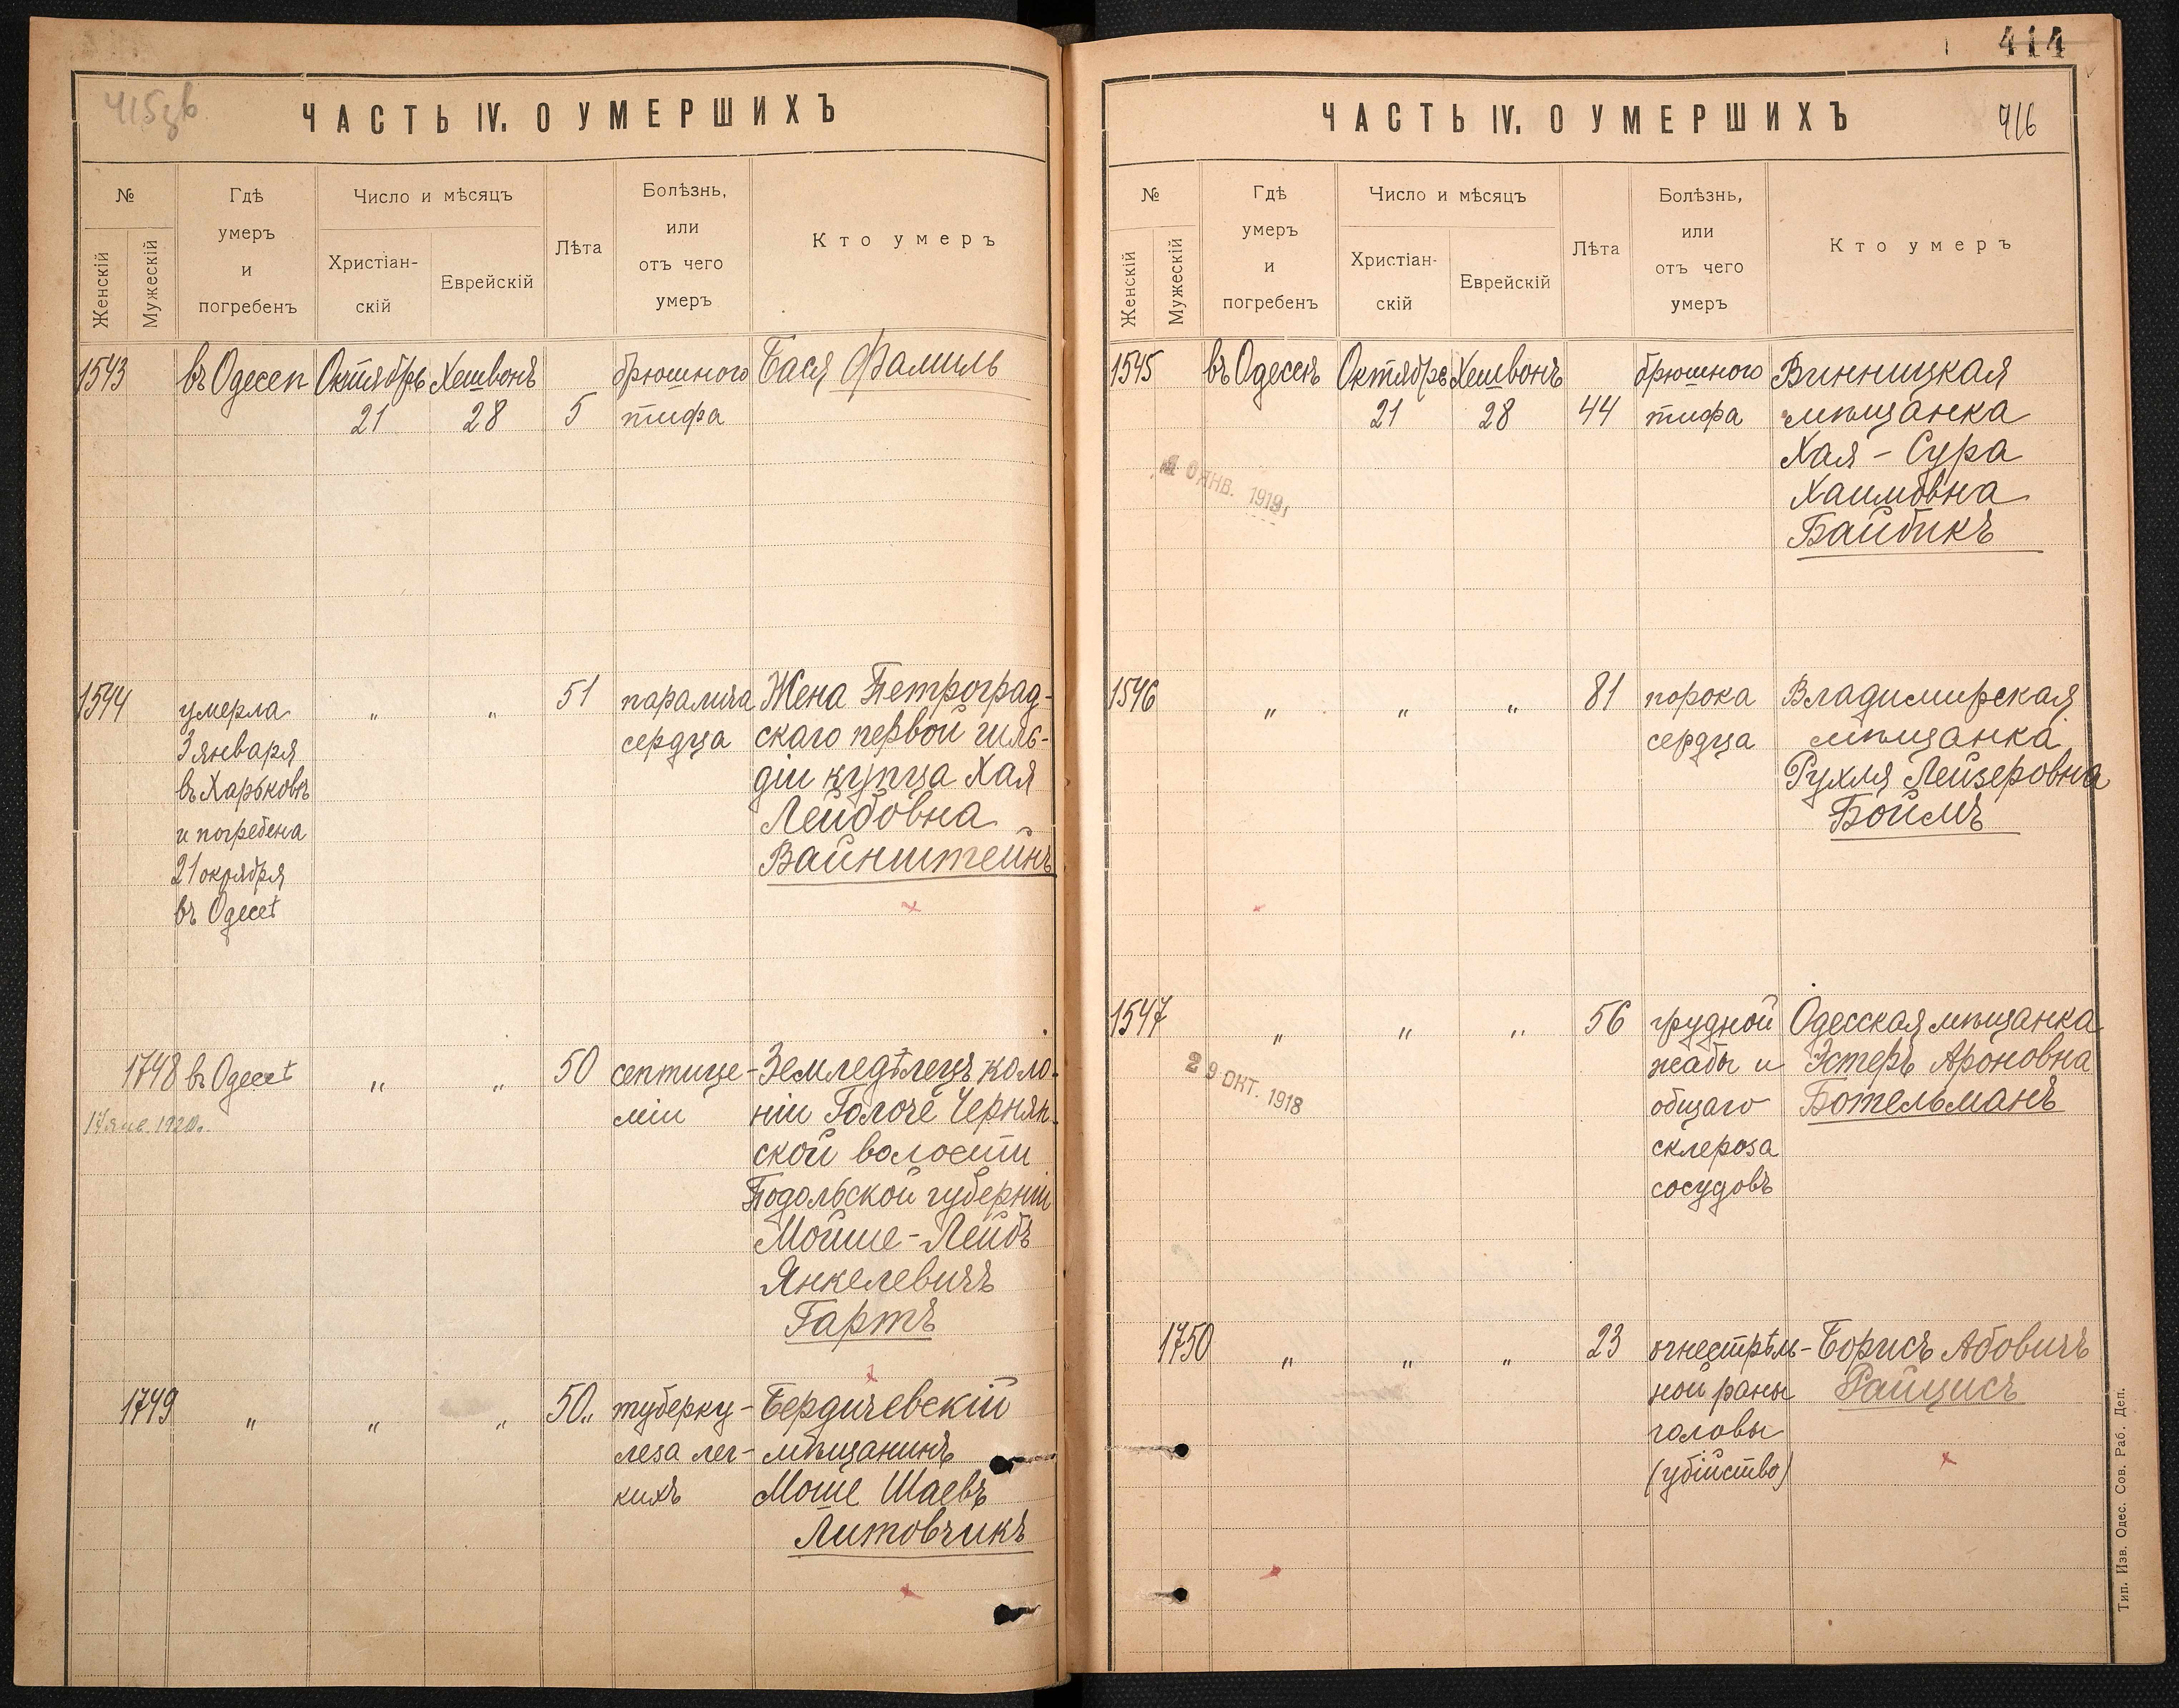 415зв
ЧАСТЬ IV. О УМЕРШИХЪ
№
Женскій
Мужескій
Гдѣ
умеръ
и
погребенъ
Число и мѣсяцъ
Христіан-
скій
Еврейскій
Лѣта
Болѣзнь,
или
отъ чего
умеръ
Кто умеръ
1543 въ Одессѣ Октябрь Хешвонъ брюшного Бася Фамиль
21 28 5 тифа
1544 умерла " " 51 паралича Жена Петроград-
3 января сердца скаго первой гиль-
въ Харьковѣ діи купца Хая
и погребена Лейбовна
21 октября Вайнштейнъ
въ Одессѣ
1748 въ Одессѣ " " 50 септице- Земледѣлецъ коло-
17 янв 1920. міи ніи Голоче Чернян-
ской волости
Подольской губерніи
Мойше-Лейбъ
Янкелевичъ
Гартъ
1749 " " " 50 туберку- Бердичевскій
леза лег- мѣщанинъ
кихъ Моше Шаевъ
Литовчикъ
414
416
ЧАСТЬ IV. О УМЕРШИХЪ
№
Женскій
Мужескій
Гдѣ
умеръ
и
погребенъ
Число и мѣсяцъ
Христіан-
скій
Еврейскій
Лѣта
Болѣзнь,
или
отъ чего
умеръ
Кто умеръ
1545 въ Одессѣ Октябрь Хешвонъ брюшного Винницкая
21 28 44 тифа мѣщанка
Хая-Сура
ЯНВ. 1919
Хаимовна
Байбикъ
1546 " " " 81 порока Владимирская
сердца мѣщанка
Рухля Лейзеровна
Боймъ
1547 " " " 56 грудной Одесская мѣщанка
жабы и Эстеръ Ароновна
29 ОКТ. 1918 общаго Ботельманъ
склероза
сосудовъ
1750 " " " 23 огнестрѣль- Борисъ Абовичъ
ной раны Райцисъ
головы
(убійство)
Тип. Изв. Одес. Сов. Раб. Деп.